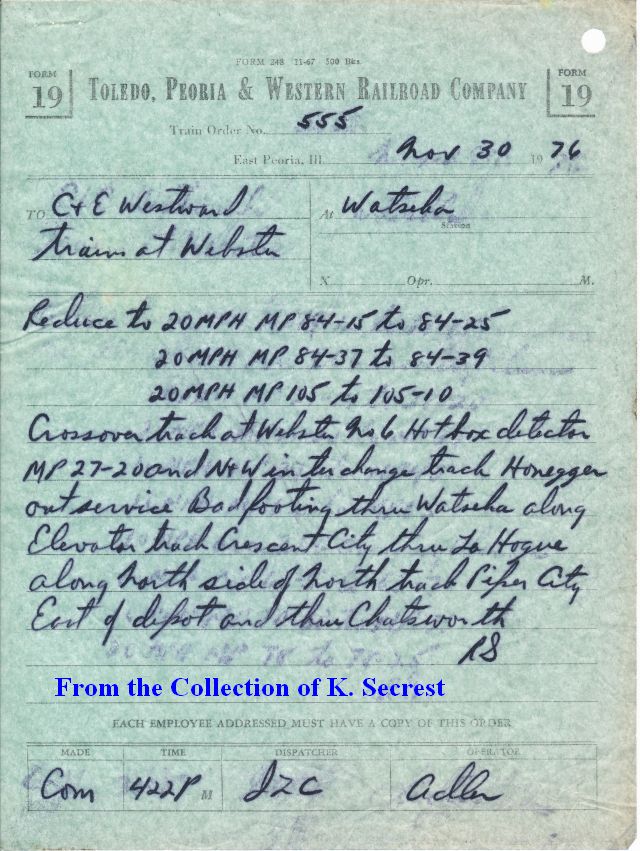 FORM 248 11-67 500 Bks.
FORM 19
TOLEDO, PEORIA & WESTERN RAILROAD COMPANY
FORM 19
Train Order No. 555
East Peoria, Ill. Nov 30 1976
TO C+E Westward
trains at Webster
At Watseka
Station
X Opr. M.
Reduce to 20MPH MP 84-15 to 84-25
20MPH MP 84-37 to 84-39
20MPH MP 105 to 105-10
Crossover track at Webster No 6 Hotbox detector
MP 27-20 and N+W interchange track Honegger
out service Bad footing thru Watseka along
Elevator track Crescent City thru La Hogue
along North side of North track Piper City
East of depot and thru Chatsworth
RS
From the Collection of K. Secrest
EACH EMPLOYEE ADDRESSED MUST HAVE A COPY OF THIS ORDER
MADE TIME DISPATCHER OPERATOR
Com 422P M JZC Adler